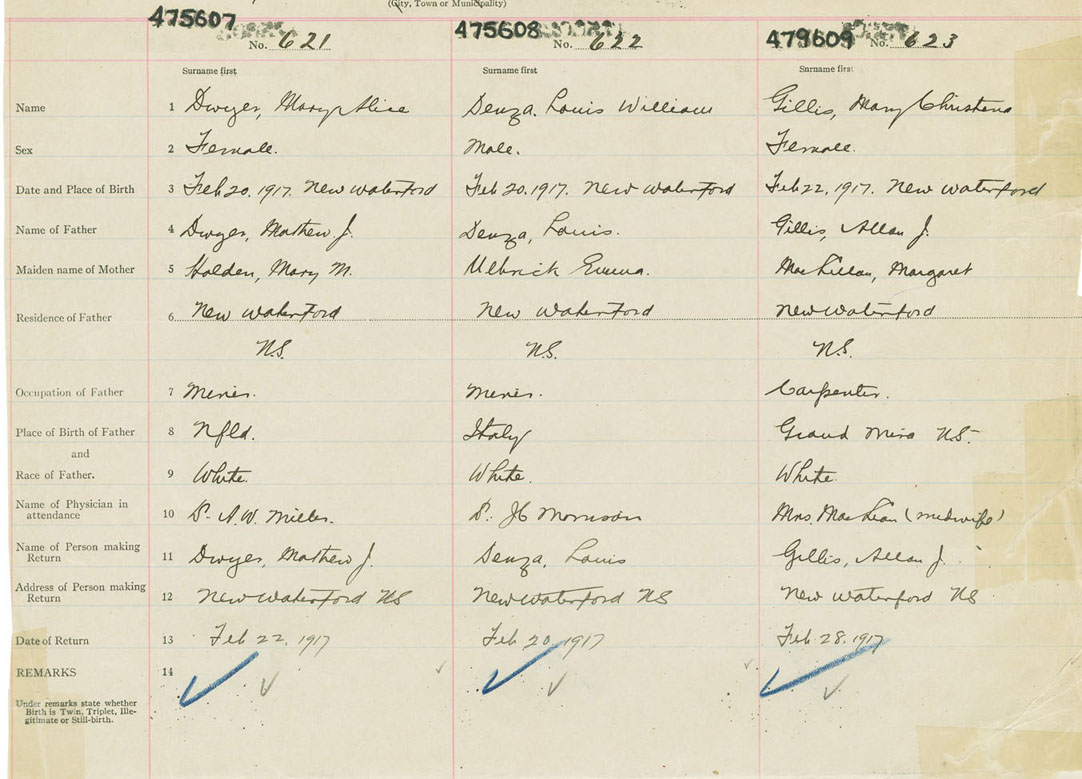 (City, Town or Municipality)
475607 475608 479609
No. 621 No. 622 No. 623
Surname first Surname first Surname first
Name 1 Dwyer, Mary Alice Denza, Louis William Gillis, Mary Christena
Sex 2 Female. Male. Female.
Date and Place of Birth 3 Feb 20, 1917. New Waterford Feb 20, 1917. New Waterford Feb 22, 1917. New Waterford
Name of Father 4 Dwyer, Mathew J. Denza, Louis. Gillis, Allan J.
Maiden name of Mother 5 Holden, Mary M. Ulbrick Emma. MacLellan, Margaret
Residence of Father 6 New Waterford New Waterford New Waterford
N.S. N.S. N.S.
Occupation of Father 7 Miner. Miner. Carpenter.
Place of Birth of Father 8 Nfld. Italy Grand Mira N.S.
and
Race of Father. 9 White. White. White.
Name of Physician in
attendance 10 Dr. A.W. Miller. Dr. JC Morrison Mrs. MacLean (midwife)
Name of Person making
Return 11 Dwyer, Mathew J. Denza, Louis Gillis, Allan J.
Address of Person making
Return 12 New Waterford NS New Waterford NS New Waterford NS
Date of Return 13 Feb 22, 1917 Feb 20, 1917 Feb 28, 1917
REMARKS 14
Under remarks state whether
Birth is Twin, Triplet, Ille-
gitimate or Still-birth.